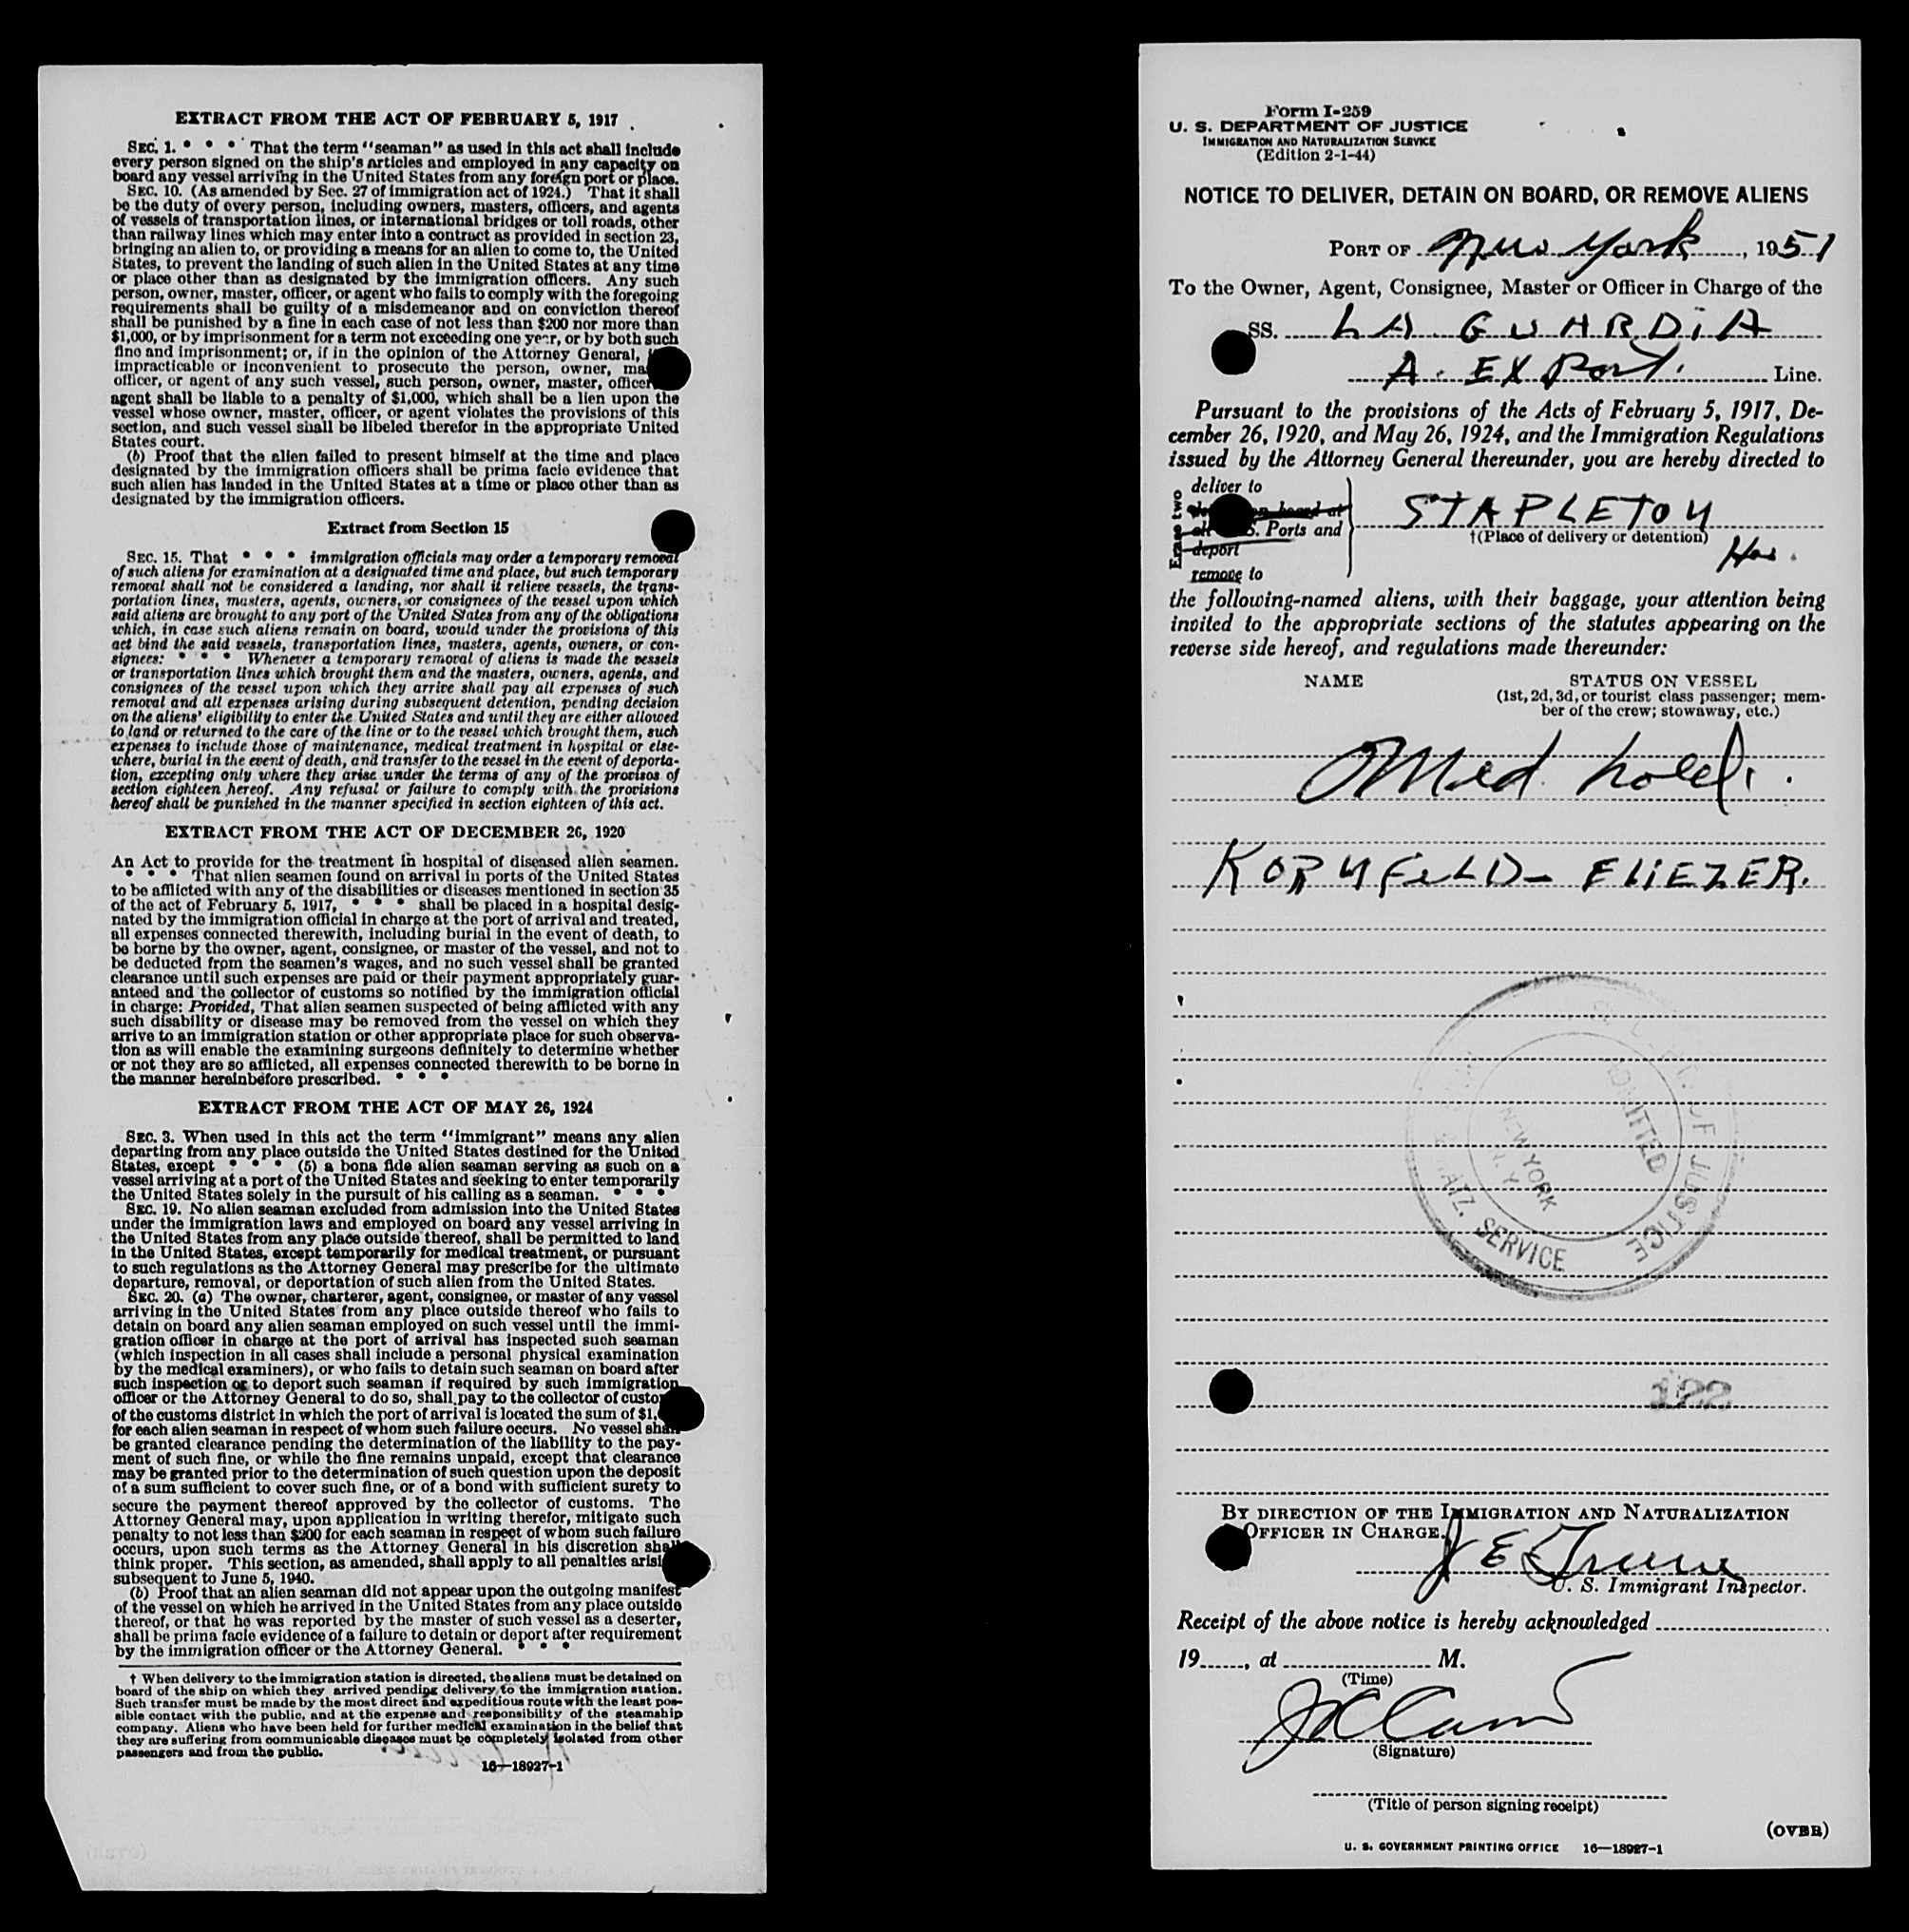 EXTRACT FROM THE ACT OF FEBRUARY 5, 1917
SEC. 1. * * * That the term "seaman" as used in this act shall include
every person signed on the ship's articles and employed in any capacity on
board any vessel arriving in the United States from any foreign port or place.
SEC. 10. (As amended by Sec. 27 of immigration act of 1924.) That it shall
be the duty of every person, including owners, masters, officers, and agents
of vessels of transportation lines, or international bridges or toll roads, other
than railway lines which may enter into a contract as provided in section 23,
bringing an alien to, or providing a means for an alien to come to, the United
States, to prevent the landing of such alien in the United States at any time
or place other than as designated by the immigration officers. Any such
person, owner, master, officer, or agent who fails to comply with the foregoing
requirements shall be guilty of a misdemeanor and on conviction thereof
shall be punished by a fine in each case of not less than $200 nor more than
$1,000, or by imprisonment for a term not exceeding one year, or by both such
fine and imprisonment; or, if in the opinion of the Attorney General,
impracticable or inconvenient to prosecute the person, owner, ma
officer, or agent of any such vessel, such person, owner, master, officer
agent shall be liable to a penalty of $1,000, which shall be a lien upon the
vessel whose owner, master, officer, or agent violates the provisions of this
section, and such vessel shall be libeled therefor in the appropriate United
States court.
(b) Proof that the alien failed to present himself at the time and place
designated by the immigration officers shall be prima facie evidence that
such alien has landed in the United States at a time or place other than as
designated by the immigration officers.
Extract from Section 15
SEC. 15. That * * * immigration officials may order a temporary removal
of such aliens for examination at a designated time and place, but such temporary
removal shall not be considered a landing, nor shall it relieve vessels, the trans-
portation lines, masters, agents, owners, or consignees of the vessel upon which
said aliens are brought to any port of the United States from any of the obligations
which, in case such aliens remain on board, would under the provisions of this
act bind the said vessels, transportation lines, masters, agents, owners, or con-
signees: * * * Whenever a temporary removal of aliens is made the vessels
or transportation lines which brought them and the masters, owners, agents, and
consignees of the vessel upon which they arrive shall pay all expenses of such
removal and all expenses arising during subsequent detention, pending decision
on the aliens' eligibility to enter the United States and until they are either allowed
to land or returned to the care of the line or to the vessel which brought them, such
expenses to include those of maintenance, medical treatment in hospital or else-
where, burial in the event of death, and transfer to the vessel in the event of deporta-
tion, excepting only where they arise under the terms of any of the provisos of
section eighteen hereof. Any refusal or failure to comply with the provisions
hereof shall be punished in the manner specified in section eighteen of this act.
EXTRACT FROM THE ACT OF DECEMBER 26, 1920
An Act to provide for the treatment in hospital of diseased alien seamen.
* * * That alien seamen found on arrival in ports of the United States
to be afflicted with any of the disabilities or diseases mentioned in section 35
of the act of February 5, 1917, * * * shall be placed in a hospital desig-
nated by the immigration official in charge at the port of arrival and treated,
all expenses connected therewith, including burial in the event of death, to
be borne by the owner, agent, consignee, or master of the vessel, and not to
be deducted from the seamen's wages, and no such vessel shall be granted
clearance until such expenses are paid or their payment appropriately guar-
anteed and the collector of customs so notified by the immigration official
in charge: Provided, That alien seamen suspected of being afflicted with any
such disability or disease may be removed from the vessel on which they
arrive to an immigration station or other appropriate place for such observa-
tion as will enable the examining surgeons definitely to determine whether
or not they are so afflicted, all expenses connected therewith to be borne in
the manner hereinbefore prescribed. * * *
EXTRACT FROM THE ACT OF MAY 26, 1924
SEC. 3. When used in this act the term "immigrant" means any alien
departing from any place outside the United States destined for the United
States, except * * * (5) a bona fide alien seaman serving as such on a
vessel arriving at a port of the United States and seeking to enter temporarily
the United States solely in the pursuit of his calling as a seaman. * * *
SEC. 19. No alien seaman excluded from admission into the United States
under the immigration laws and employed on board any vessel arriving in
the United States from any place outside thereof, shall be permitted to land
in the United States, except temporarily for medical treatment, or pursuant
to such regulations as the Attorney General may prescribe for the ultimate
departure, removal, or deportation of such alien from the United States.
SEC. 20. (a) The owner, charterer, agent, consignee, or master of any vessel
arriving in the United States from any place outside thereof who fails to
detain on board any alien seaman employed on such vessel until the immi-
gration officer in charge at the port of arrival has inspected such seaman
(which inspection in all cases shall include a personal physical examination
by the medical examiners), or who fails to detain such seaman on board after
such inspection or to deport such seaman if required by such immigration
officer or the Attorney General to do so, shall pay to the collector of custo
of the customs district in which the port of arrival is located the sum of $1,
for each alien seaman in respect of whom such failure occurs. No vessel shall
be granted clearance pending the determination of the liability to the pay-
ment of such fine, or while the fine remains unpaid, except that clearance
may be granted prior to the determination of such question upon the deposit
of a sum sufficient to cover such fine, or of a bond with sufficient surety to
secure the payment thereof approved by the collector of customs. The
Attorney General may, upon application in writing therefor, mitigate such
penalty to not less than $200 for each seaman in respect of whom such failure
occurs, upon such terms as the Attorney General in his discretion shall
think proper. This section, as amended, shall apply to all penalties arisi
subsequent to June 5, 1940.
(b) Proof that an alien seaman did not appear upon the outgoing manifest
of the vessel on which he arrived in the United States from any place outside
thereof, or that he was reported by the master of such vessel as a deserter,
shall be prima facie evidence of a failure to detain or deport after requirement
by the immigration officer or the Attorney General. * * *
† When delivery to the immigration station is directed, the aliens must be detained on
board of the ship on which they arrived pending delivery to the immigration station.
Such transfer must be made by the most direct and expeditious route with the least pos-
sible contact with the public, and at the expense and responsibility of the steamship
company. Aliens who have been held for further medical examination in the belief that
they are suffering from communicable diseases must be completely isolated from other
passengers and from the public.
16—18927-1
Form I-259
U. S. DEPARTMENT OF JUSTICE
IMMIGRATION AND NATURALIZATION SERVICE
(Edition 2-1-44)
NOTICE TO DELIVER, DETAIN ON BOARD, OR REMOVE ALIENS
PORT OF New York, 1951
To the Owner, Agent, Consignee, Master or Officer in Charge of the
SS. LA GUARDIA
A. EXPort. Line.
Pursuant to the provisions of the Acts of February 5, 1917, De-
cember 26, 1920, and May 26, 1924, and the Immigration Regulations
issued by the Attorney General thereunder, you are hereby directed to
Erase two
deliver to
on board at
all S. Ports and
deport
remove to
STAPLETON
†(Place of delivery or detention)
Hos.
the following-named aliens, with their baggage, your attention being
invited to the appropriate sections of the statutes appearing on the
reverse side hereof, and regulations made thereunder:
NAME STATUS ON VESSEL
(1st, 2d, 3d, or tourist class passenger; mem-
ber of the crew; stowaway, etc.)
Med hold.
KORNFELD - ELIEZER.
OF JUSTICE
ADMITTED
NEW YORK
N. Y.
SERVICE
122
BY DIRECTION OF THE IMMIGRATION AND NATURALIZATION
OFFICER IN CHARGE.
J E
U. S. Immigrant Inspector.
Receipt of the above notice is hereby acknowledged
19, at M.
(Time)
(Signature)
(Title of person signing receipt)
(OVER)
U. S. GOVERNMENT PRINTING OFFICE 16—18927-1